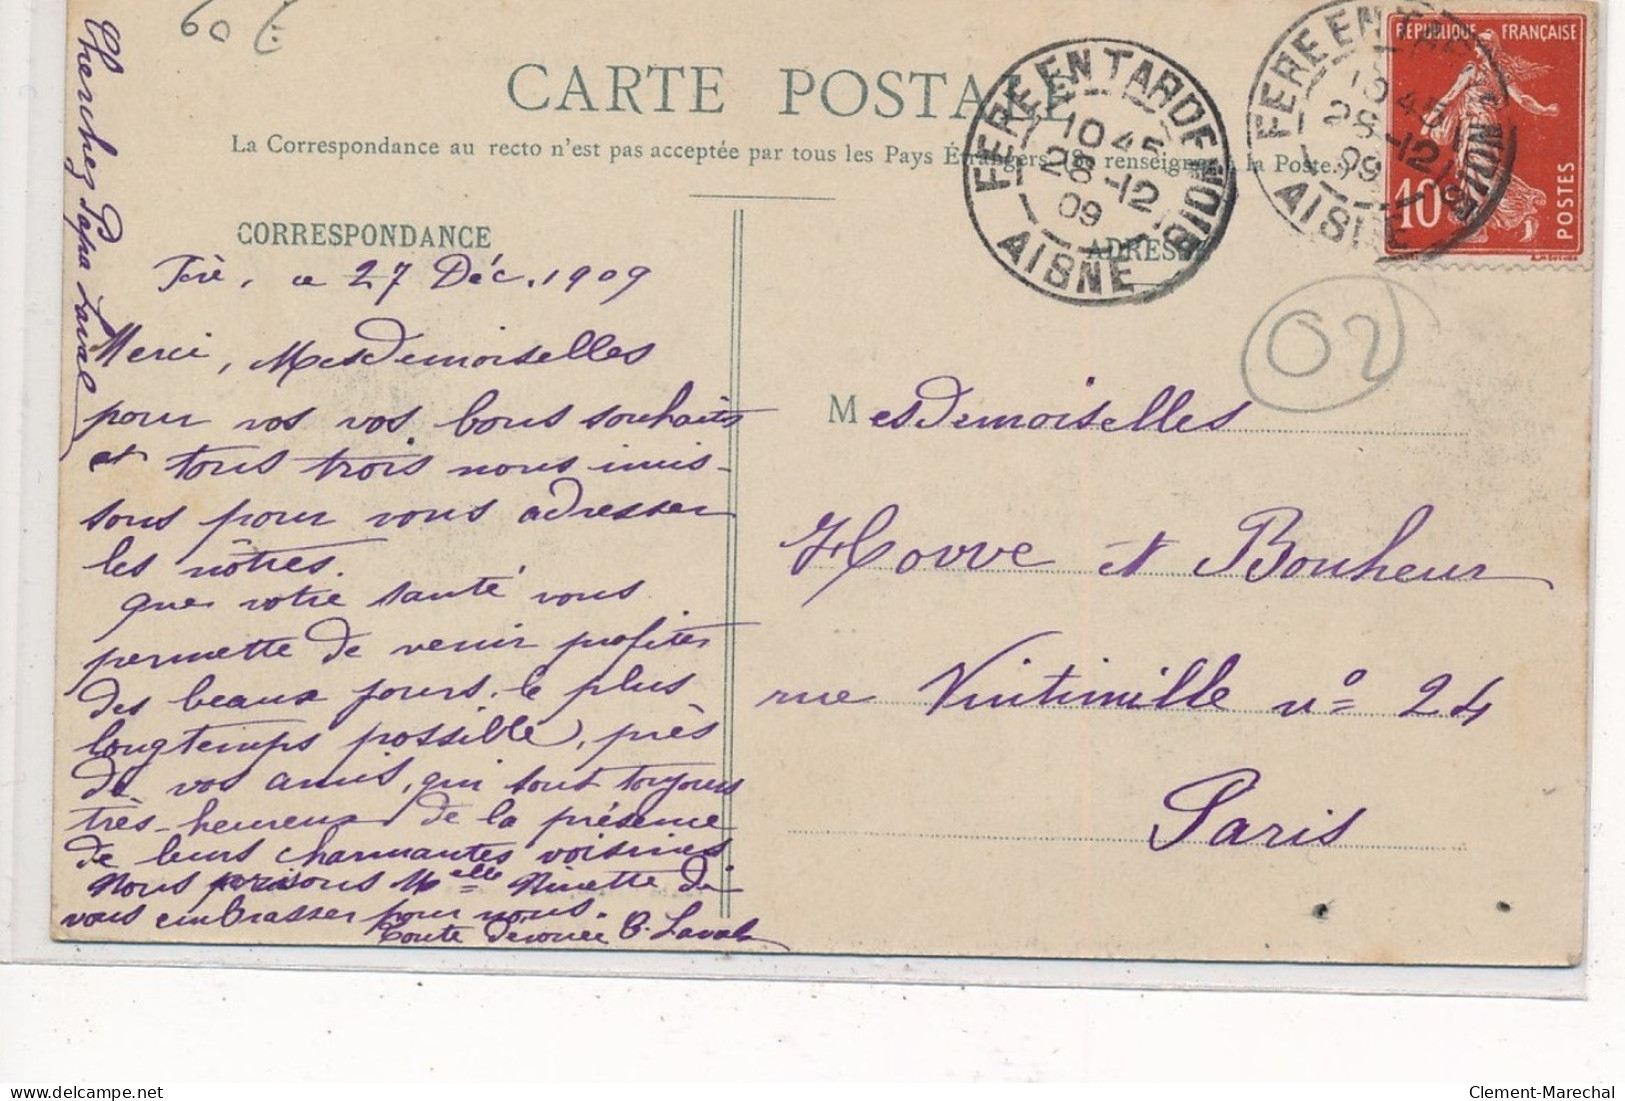 60 €
CARTE POSTALE
La Correspondance au recto n'est pas acceptée par tous les Pays Étrangers. (Se renseigner à la Poste.)
CORRESPONDANCE
ADRESSE
FERE EN TARDENOIS
10 45
28-12
09
AISNE
FERE EN
10 45
28-12
09
AISNE
RÉPUBLIQUE FRANÇAISE
10
POSTES
02
Cherchez Papa Laval
Fère, ce 27 Déc. 1909
Merci, MesDemoiselles
pour vos vos bons souhaits
et tous trois nous unis-
sons pour vous adresser
les nôtres.
que votre santé vous
permette de venir profiter
des beaux jours, le plus
longtemps possible, près
de vos amis, qui sont toujours
très-heureux de la présence
de leurs charmantes voisines
Nous prions Melle Ninette de
vous embrasser pour nous.
Toute dévouée B. Laval
MesDemoiselles
Hovve et Bonheur
rue Vintimille no 24
Paris
Clement-Marechal